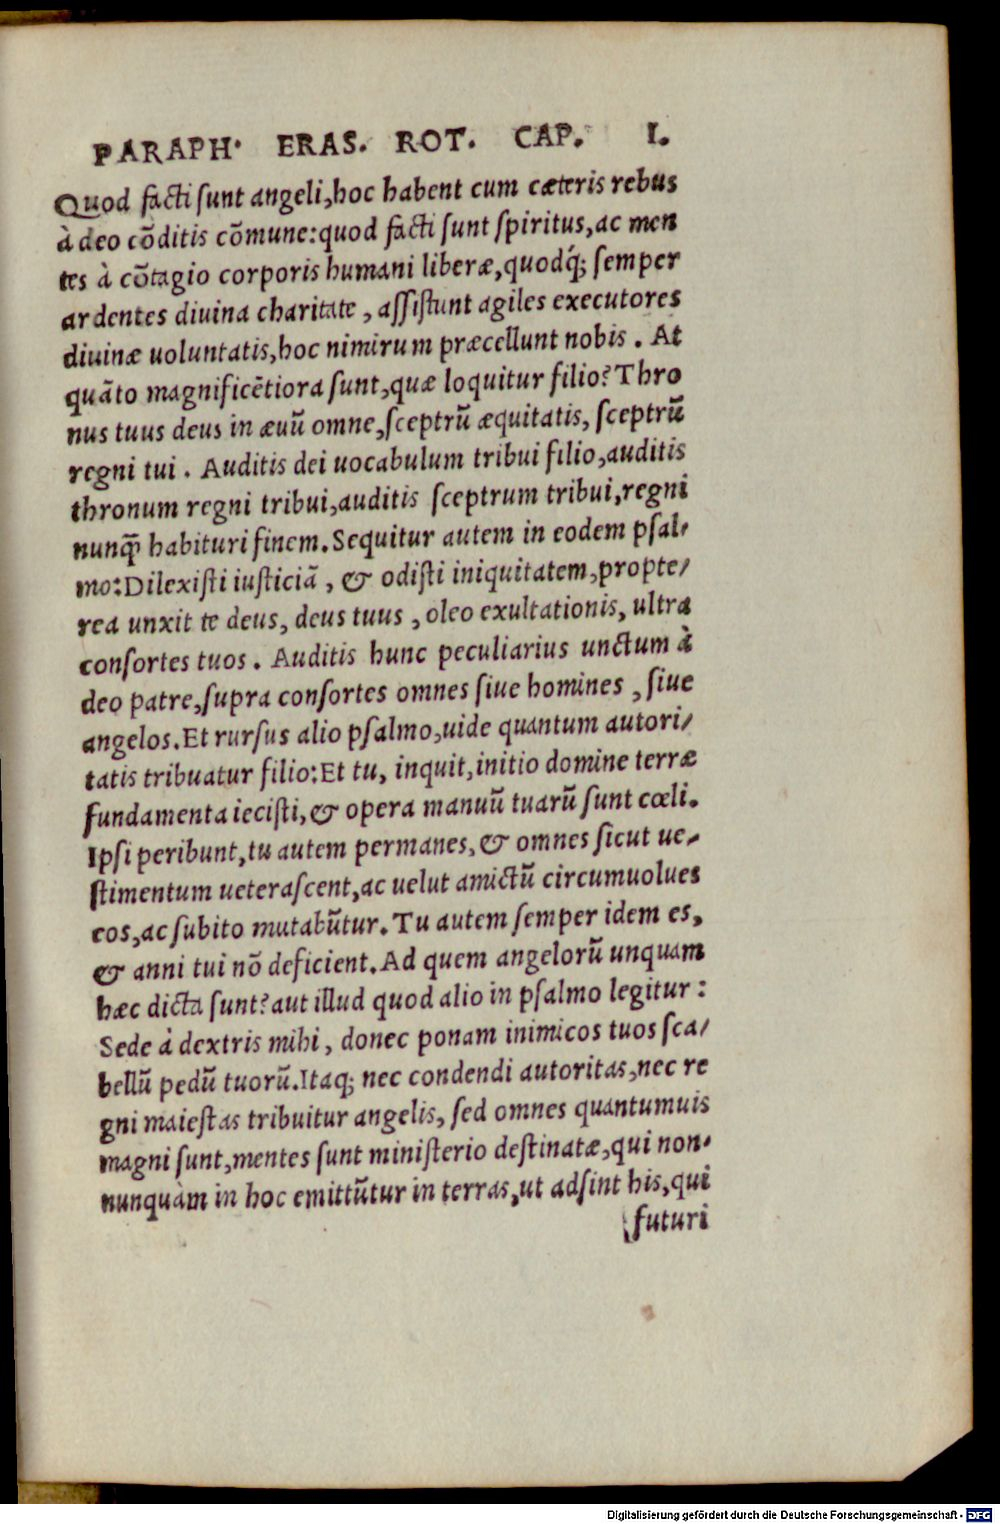 PARAPH. ERAS. ROT. CAP. I.
Quod facti sunt angeli, hoc habent cum cæteris rebus
à deo cõditis cõmune: quod facti sunt spiritus, ac men
tes à cõtagio corporis humani liberæ, quodq́; semper
ardentes diuina charitate, assistunt agiles executores
diuinæ uoluntatis, hoc nimirum præcellunt nobis. At
quãto magnificẽtiora sunt, quæ loquitur filio? Thro
nus tuus deus in æuũ omne, sceptrũ æquitatis, sceptrũ
regni tui. Auditis dei uocabulum tribui filio, auditis
thronum regni tribui, auditis sceptrum tribui, regni
nunq̃ habituri finem. Sequitur autem in eodem psal/
mo: Dilexisti iusticiã, & odisti iniquitatem, propte/
rea unxit te deus, deus tuus, oleo exultationis, ultra
consortes tuos. Auditis hunc peculiarius unctum à
deo patre, supra consortes omnes siue homines, siue
angelos. Et rursus alio psalmo, uide quantum autori/
tatis tribuatur filio: Et tu, inquit, initio domine terræ
fundamenta iecisti, & opera manuũ tuarũ sunt cœli.
Ipsi peribunt, tu autem permanes, & omnes sicut ue-
stimentum ueterascent, ac uelut amictũ circumuolues
eos, ac subito mutabũtur. Tu autem semper idem es,
& anni tui nõ deficient. Ad quem angelorũ unquam
hæc dicta sunt? aut illud quod alio in psalmo legitur:
Sede à dextris mihi, donec ponam inimicos tuos sca/
bellũ pedũ tuorũ. Itaq; nec condendi autoritas, nec re
gni maiestas tribuitur angelis, sed omnes quantumuis
magni sunt, mentes sunt ministerio destinatæ, qui non-
nunquàm in hoc emittũtur in terras, ut adsint his, qui
futuri
Digitalisierung gefördert durch die Deutsche Forschungsgemeinschaft - DFG